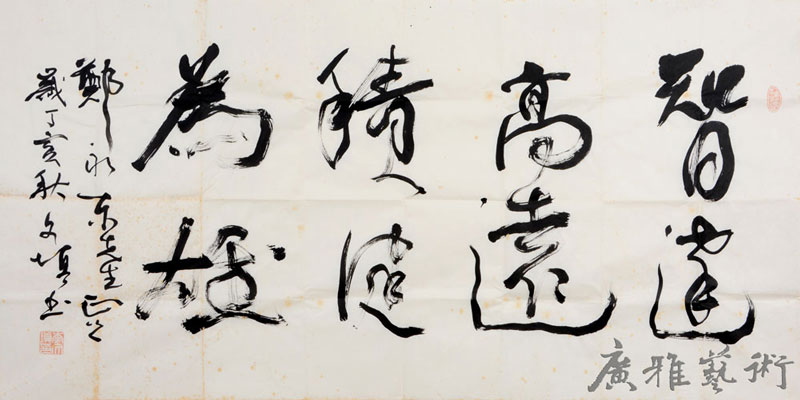 智達
高遠
積健
為雄
鄭永東先生正之
歲丁亥秋文書
廣雅藝術